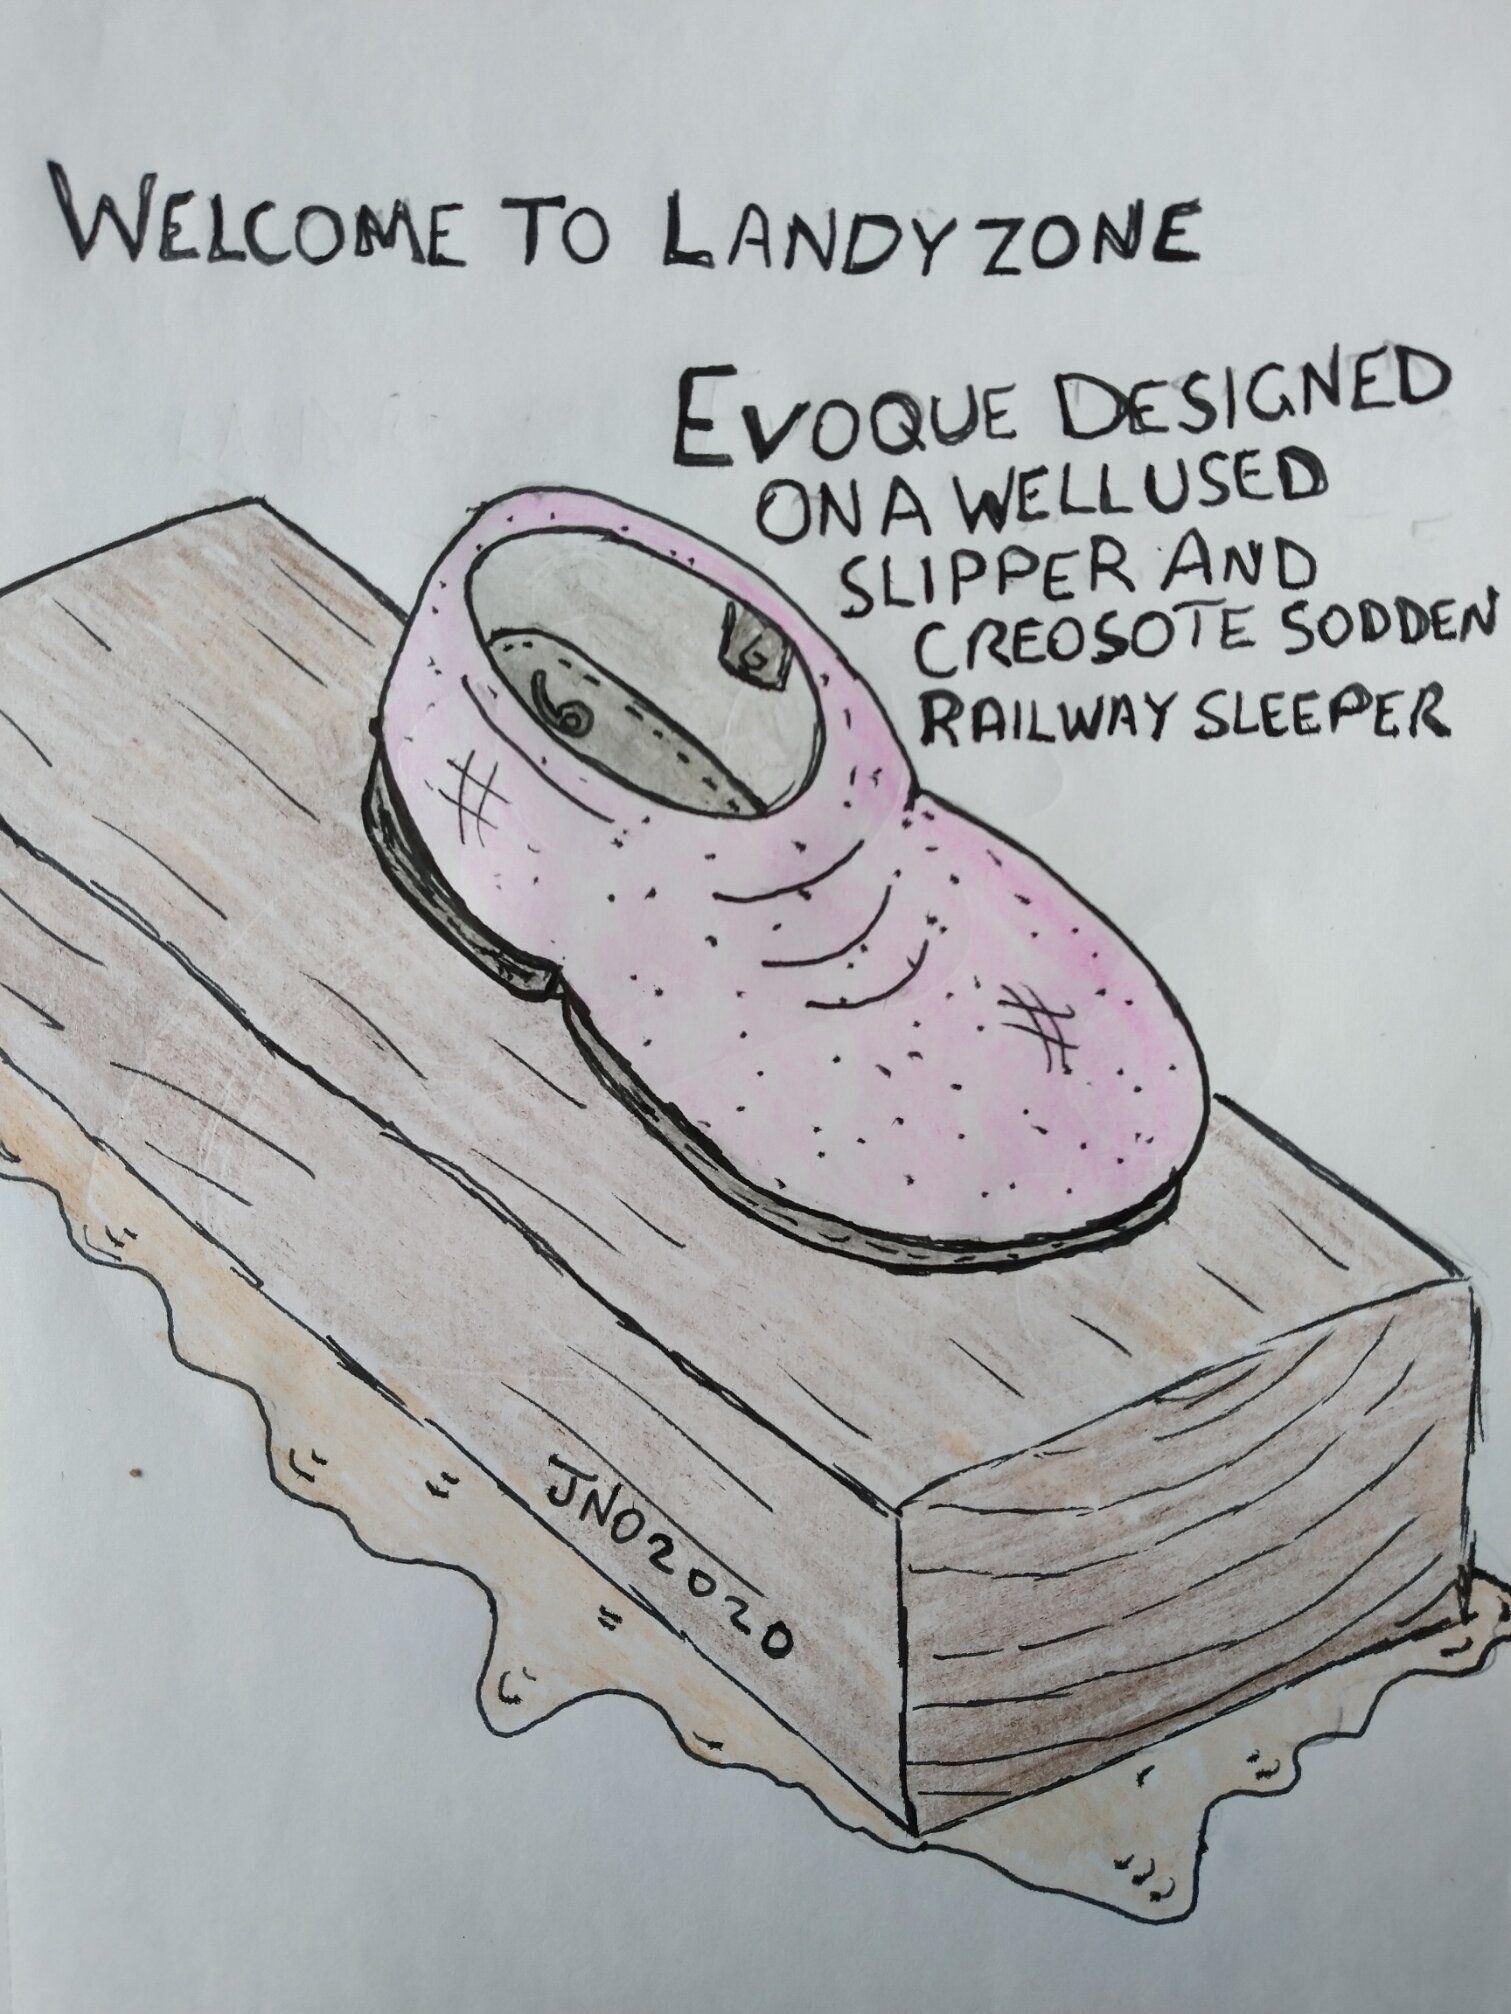 WELCOME TO LANDYZONE
EVOQUE DESIGNED
ON A WELL USED
SLIPPER AND
CREOSOTE SODDEN
RAILWAY SLEEPER
6
6
JNO2020